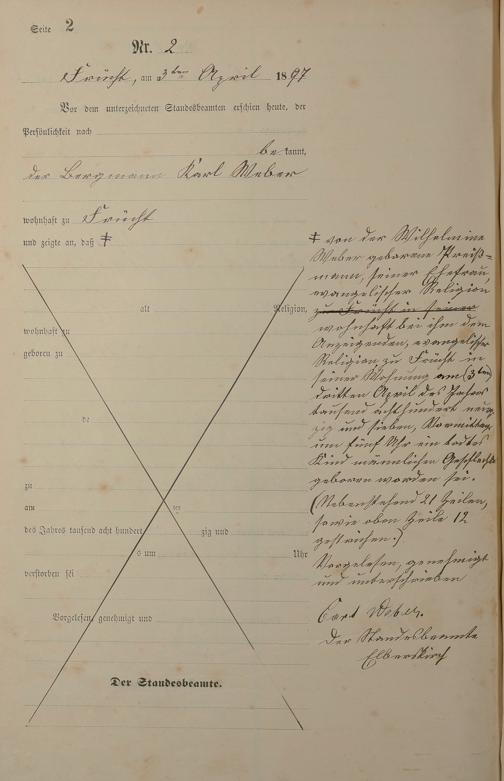 Seite 2
Nr. 2
Frücht, am 3ten April 1897
Vor dem unterzeichneten Standesbeamten erschien heute, der
Persönlichkeit nach
be kannt,
der Bergmann Karl Weber
wohnhaft zu Frücht
und zeigte an, daß ‡
alt Religion,
wohnhaft zu
geboren zu
de
zu
am ten
des Jahres tausend acht hundert zig und
s um Uhr
verstorben sei
Vorgelesen, genehmigt und
Der Standesbeamte.
‡ von der Wilhelmine
Weber geborene
mann, seiner Ehefrau,
evangelischer Religion
zu Frücht in seiner
wohnhaft bei ihm dem
Anzeigenden, evangelischer
Religion zu Frücht in
seiner Wohnung am (3ten)
dritten April des Jahres
tausend achthundert neun-
zig und sieben, Vormittags
um fünf Uhr ein todtes
Kind männlichen Geschlechts
geboren worden sei.
(Nebenstehend 21 Zeilen,
sowie oben Zeile 12
gestrichen.)
Vorgelesen, genehmigt
und unterschrieben
Carl Weber.
Der Standesbeamte
Elberskirch